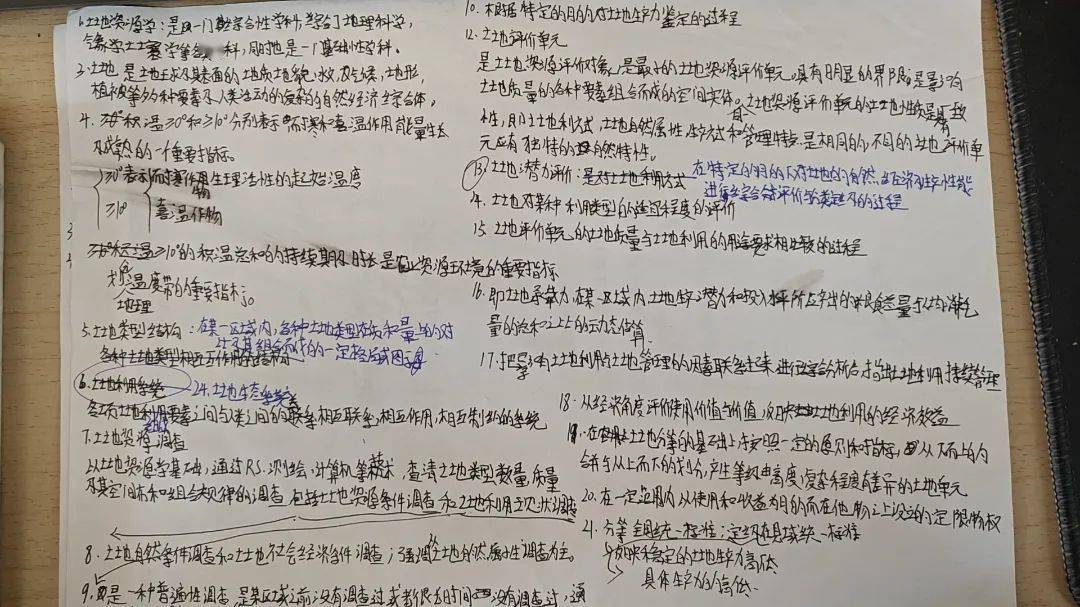 1.土地资源学：是一门综合性学科，综合了土地理科学，
气象学土壤学等 科，同时也是一门基础性学科。
3.土地 是地球表面的土地质地貌，水文，气候，地形，
植被等多种要素及人类活动的复杂的自然经济综合体，
4. 积温≥0°和≥10°分别表示 耐寒和喜温作用能量生长
及成熟的一个重要指标。
≥0°表示耐寒作物生理活性的起始温度
≥10° 喜温作物
3
4 ≥10°的积温总和的持续期 是 资源环境的重要指标
划 温度带的重要指标。
地理
5.土地类型结构：在某一区域内，各种土地类型在质和量上的对
比及其组合而成的一定格局
各种土地类型相互作用的
6.土地利用系统 24.土地生态系统
各土地利用要素之间与人类之间的 相互联系，相互作用，相互制约的系统
7.土地资源调查
以土地资源学基础，通过RS.测绘，计算机等技术，查清土地类型数量，质量
及其空间 和组合规律的调查 包括土地资源条件调查和土地利用现状调查
8.土地自然条件调查和土地社会经济条件调查；强调土地自然属性调查为主。
9.即是一种普遍性调查，是某区域之前没有调查过或者很长时间 没有调查过，通
10.根据特定的目的对土地生产力鉴定的过程
12.土地评价单元
是土地资源评价对象，是最小的土地资源评价单元。具有明显的界限；是影响
土地质量的各种要素组合而成的空间实体。且土地资源评价单元的土地性质是
性，即土地利方式，土地自然属性，生产方式和管理特点是相同的，不同的土地评价单
元应有独特的自然特性。
13.土地潜力评价：是对土地利用方式 在特定的目的下对土地的自然，社会经济生产性能
进行综合 评价 的过程
14.土地对某种利用类型的适宜程度的评价
15.土地评价单元的土地质量与土地利用的用途要求相比较的过程
16.即土地承载力，在某一区域内土地生产潜力和投入水平所产出的 食总量与人均消耗
量的 比的动态估算
17.把影响土地利用的土地管理的因素联系起来进行综合分析后指出土地利用持续管理
18.从经济角度评价使用价值与价值，反映土地利用的经济效益
19.在农用土地分等的基础上按照一定的原则和指标，从下而上的
合并与从上而下的划分，产生等级由高度，复杂程度有差异的土地单元
20.在一定范围内以使用和收益为目的而在他人物上设立的定限物权
21.分等全国统一标准；定级在县域统一标准
反映稳定的土地生产力高低
具体生产力的高低.